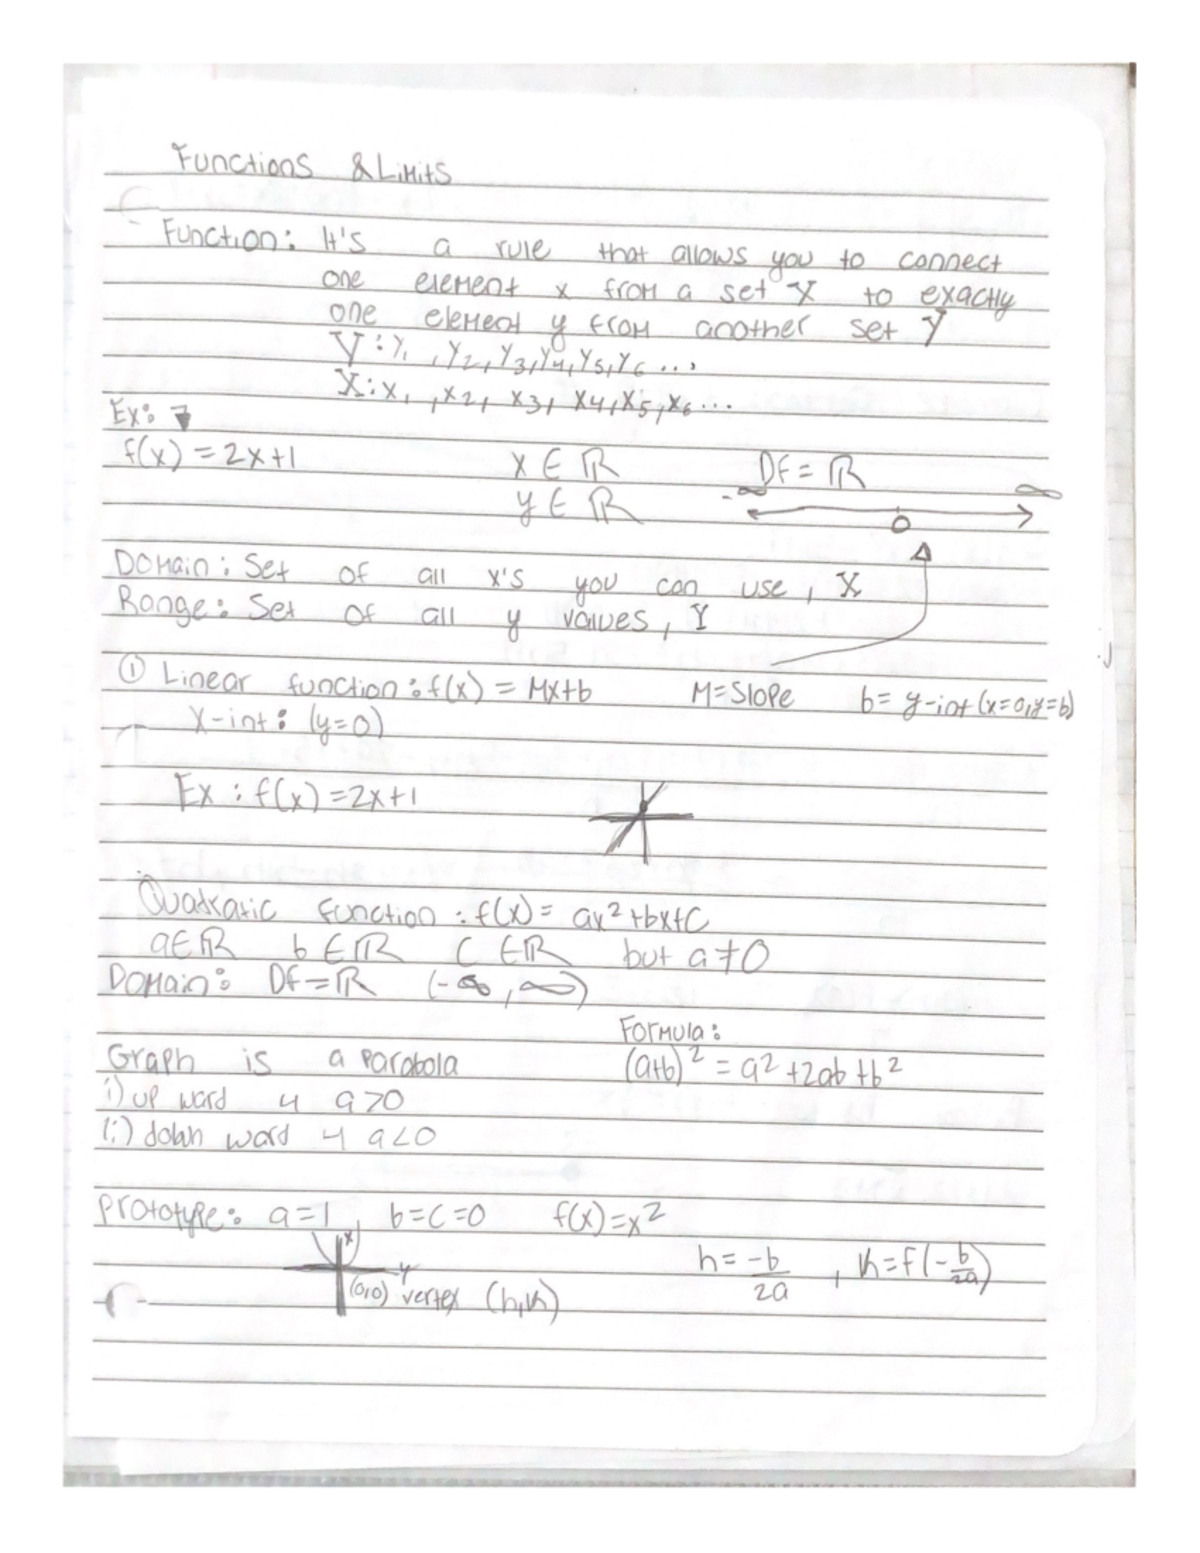 Functions & Limits
Function: It's a rule that allows you to connect
one element x from a set X to exactly
one element y from another set Y
Y: y₁, y₂, y₃, y₄, y₅, y₆ ...
X: x₁, x₂, x₃, x₄, x₅, x₆ ...
Ex:
f(x) = 2x+1 x ∈ ℝ Df = ℝ
y ∈ ℝ -∞ 0 ∞
Domain: Set of all x's you can use, X
Range: Set of all y values, Y
① Linear function: f(x) = Mx+b M=Slope b= y-int (x=0, y=b)
X-int: (y=0)
Ex: f(x)=2x+1
Quadratic function: f(x) = ax²+bx+C
a∈ℝ b∈ℝ C∈ℝ but a≠0
Domain: Df=ℝ (-∞, ∞)
Formula:
Graph is a parabola (a+b)² = a²+2ab+b²
i) up ward a>0
ii) down ward a<0
Prototype: a=1, b=c=0 f(x)=x²
x y h = -b/2a, k=f(-b/2a)
(0,0) vertex (h,k)